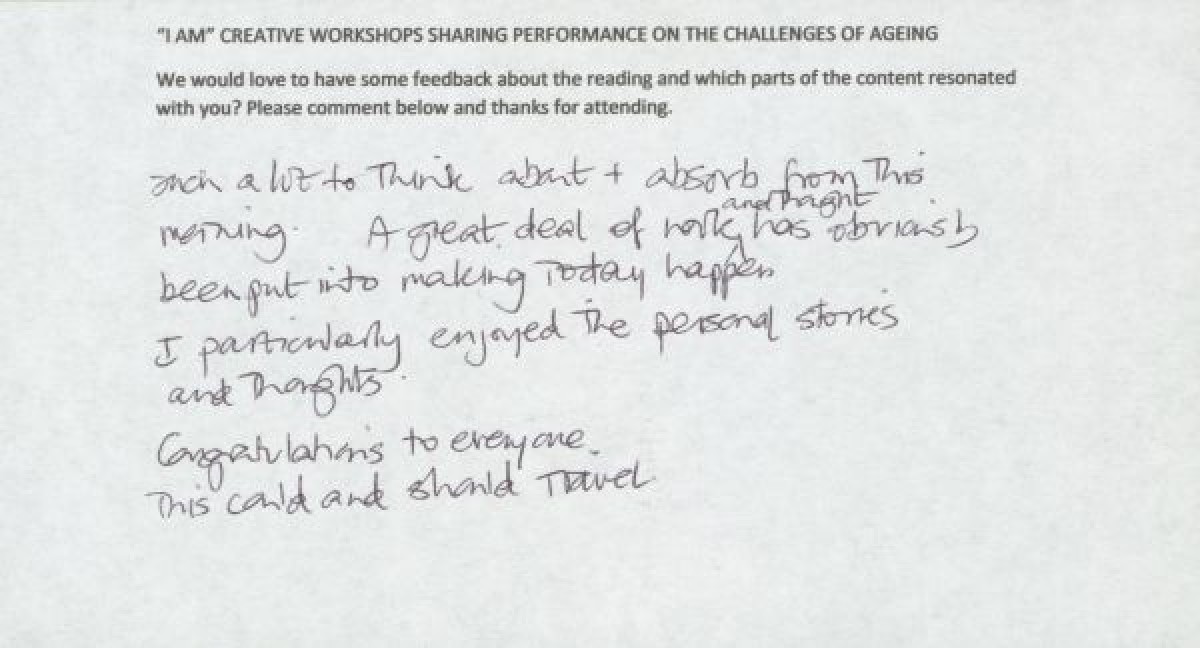 "I AM" CREATIVE WORKSHOPS SHARING PERFORMANCE ON THE CHALLENGES OF AGEING
We would love to have some feedback about the reading and which parts of the content resonated
with you? Please comment below and thanks for attending.
Such a lot to Think about + absorb from This
morning. A great deal of work and thought has obviously
been put into making Today happen
I particularly enjoyed The personal stories
and Thoughts.
Congratulations to everyone.
This could and should Travel